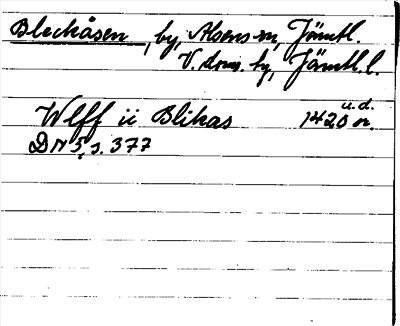 Bleckåsen, by, Alsens sn, Jämtl.
V. dom. by, Jämtl. l.
Wlff ii Blikas 1420 u.d. or.
DN 5, s. 377